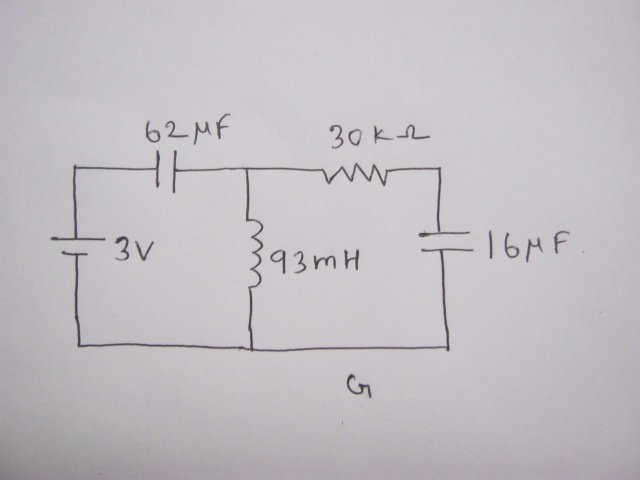 62 μF
30 K Ω
3V
93mH
16μF
G